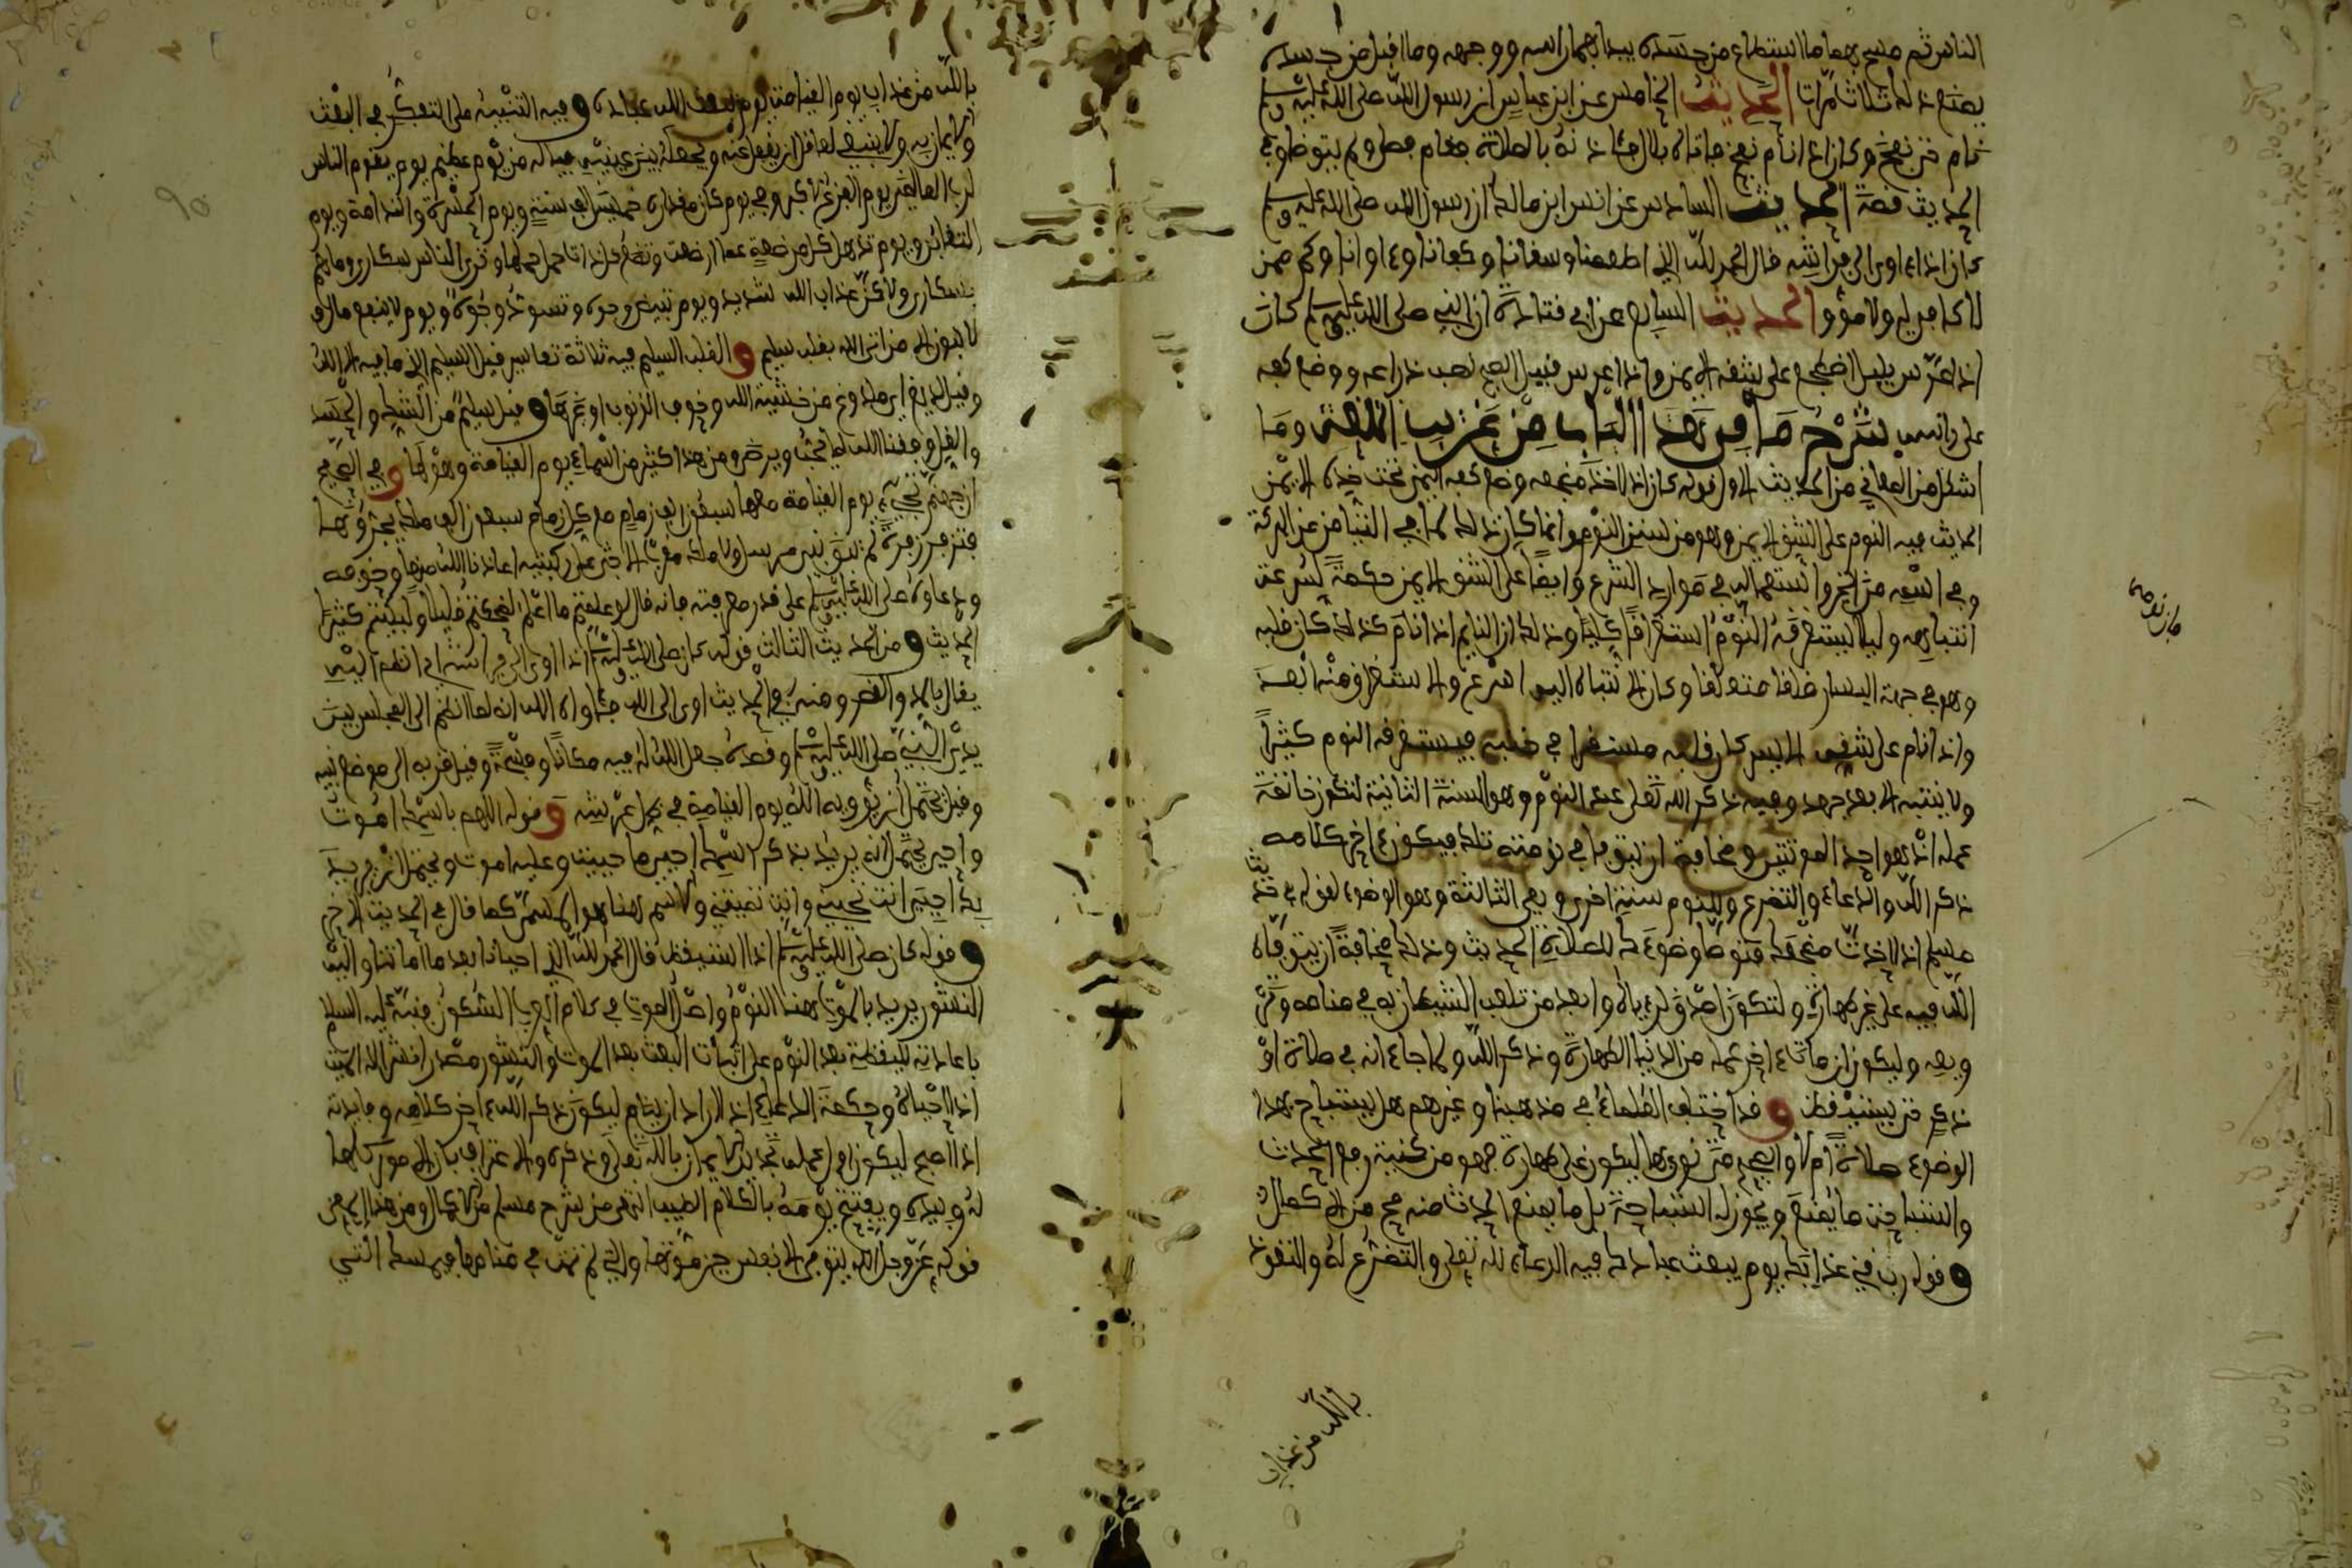 الناس ثم مسح بهما ما استطاع من جسده يبدا بهما راسه ووجهه وما اقبل من جسده
يصنع ذلك ثلاث مرات الحديث الخامس عن ابن عباس ان رسول الله صلى الله عليه وسلم
نام حتى نفخ وكان اذا نام نفخ فاتاه بلال فئاذنه بالصلاة فقام فصلى ولم يتوضا وفي
الحديث قصة الحديث السادس عن انس ابن مالك ان رسول الله صلى الله عليه وسلم
كان اذا اوى الى فراشه قال الحمد لله الذي اطعمنا وسقانا وكفانا وءاوانا وكم ممن
لا كافي له ولا مؤوي الحديث السابع عن ابي قتادة ان النبي صلى الله عليه وسلم كان
اذا عرس بليل اضطجع على شقه الايمن واذا عرس قبيل الصبح نصب ذراعه ووضع كفه
على راسه شرح ما في هذا الباب من غريب اللغة وما
اشكل من المعاني من الحديث الاول قوله كان اذا اخذ مضجعه وضع كفه اليمنى تحت خده الايمن
الحديث فيه النوم على الشق الايمن وهو من سنن النوم وانما كان ذلك لما في التيامن من البركة
وفي اسمه من الخير واستعماله في موارد الشرع وايضا على الشق الايمن حكمة لسرعة
انتباهه وليلا يستغرقه النوم استغراقا كليا وذلك ان النايم اذا نام كذلك كان قلبه
وهو في جهة اليسار قلقا متعلقا وكان الانتباه اليه اسرع والاستغراق منه ابعد
واذا نام على شقه الايسر كان قلبه مستقرا في فيستغرقه النوم كثيرا
ولا ينتبه الا بعد جهد وفيه ذكر الله تعلى عند النوم وهو السنة الثانية لتكون خاتمة
عمله اذ هو احد الموتتين ومخافة ان يتوفا في نومته تلك فيكون ءاخر كلامه
ذكر الله والدعاء والتضرع وللنوم سنة اخرى وهي الثالثة وهو الوضوء لقوله في حديث
مسلم اذا اخذت مضجعك فتوضا وضوءك للصلاة الحديث وذلك مخافة ان يتوفاه
الله فيه على غير طهارة ولتكون اصدق لرؤياه وابعد من تلعب الشيطان به في منامه وترويعه
وليكون ان مات ءاخر عمله من الدنيا الطهارة وذكر الله ولما جاء انه في صلاة او
ذكر حتى يستيقظ وقد اختلف العلماء في مذهبنا وغيرهم هل يستباح بهذا
الوضوء صلاة ام لا والصحيح متى نوى بها ليكون على طهارة فهو من كنية رفع الحدث
واستباحة ما يمنع ويجوز له استباحة كل ما يمنع الحدث منه صح من الاكمال
وقوله رب قني عذابك يوم يبعث عبادك فيه الدعاء لله تعلى والتضرع له والتعوذ
بالله من عذاب
بالله من عذاب يوم القيامة يوم يبعث الله عباده وفيه التنبيه على التفكر في البعث
والايمان به ولا ينبغي لعاقل ان يغفل عنه ويجعله بين عينيه فيا له من يوم عظيم يوم يقوم الناس
لرب العالمين يوم الفزع الاكبر وفي يوم كان مقداره خمسين الف سنة ويوم الحسرة والندامة ويوم
التغابن ويوم تذهل كل مرضعة عما ارضعت وتضع كل ذات حمل حملها وترى الناس سكارى وما هم
بسكارى ولكن عذاب الله شديد ويوم تبيض وجوه وتسود وجوه ويوم لا ينفع مال و
لا بنون الا من اتى الله بقلب سليم والقلب السليم فيه ثلاثة تفاسير قيل السليم الذي ما فيه الا الله
وقيل لديغ اي ملدوغ من خشية الله وخوف الذنوب او غيرها وقيل سليم من الشك والحسد
والغل وفقنا الله لما يحب ويرضى ومن هذا كثير من اسماء يوم القيامة وهولها وفي الصحيح
ان جهنم تجيء يوم القيامة معها سبعون الف زمام مع كل زمام سبعون الف ملك يجرونها
فتزفر زفرة لم يبق نبي مرسل ولا ملك مقرب الا جثى على ركبتيه اعاذنا الله منها وخوفه
ودعاؤه صلى الله عليه وسلم على قدر معرفته فانه قال لو علمتم ما اعلم لضحكتم قليلا ولبكيتم كثيرا
الحديث ومن الحديث الثالث قوله كان صلى الله عليه وسلم اذا اوى الى فراشه اي انضم اليه
يقال بالمد والقصر ومنه في الحديث اوى الى الله فئاواه الله اي لما انضم الى المجلس بين
يدي النبي صلى الله عليه وسلم وقصده جعل الله له فيه مكانا وفسحة وقيل قربه الى موضع نبيه
وقيل يحتمل ان يؤويه الله يوم القيامة في ظل عرشه وقوله اللهم باسمك اموت
واحيى يحتمل انه يريد بذكر اسمك احيى ما حييت وعليه اموت ويحتمل انه يريد
بك احيى انت تحييني وانت تميتني والاسم هنا هو المسمى كما قال في الحديث الاخر
وقوله كان صلى الله عليه وسلم اذا استيقظ قال الحمد لله الذي احيانا بعد ما اماتنا واليه
النشور يريد بالموت هنا النوم واصل الموت في كلام العرب السكون فنبه عليه السلام
باعادته اليقظة بعد النوم على اثبات البعث بعد الموت والنشور مصدر انشر الله الميت
اذا احياه وحكمة الدعاء اذا اراد ان ينام ليكون ذكر الله ءاخر كلامه وفايدته
اذا اصبح ليكون اول عمله تجديد الايمان بالله تعلى وذكره والاعتراف بان الامور كلها
له وبيده ويفتتح يومه بالكلام الطيب انتهى من شرح مسلم من الاكمال ومن هذا المعنى
قوله عز وجل الله يتوفى الانفس حين موتها والتي لم تمت في منامها فيمسك التي